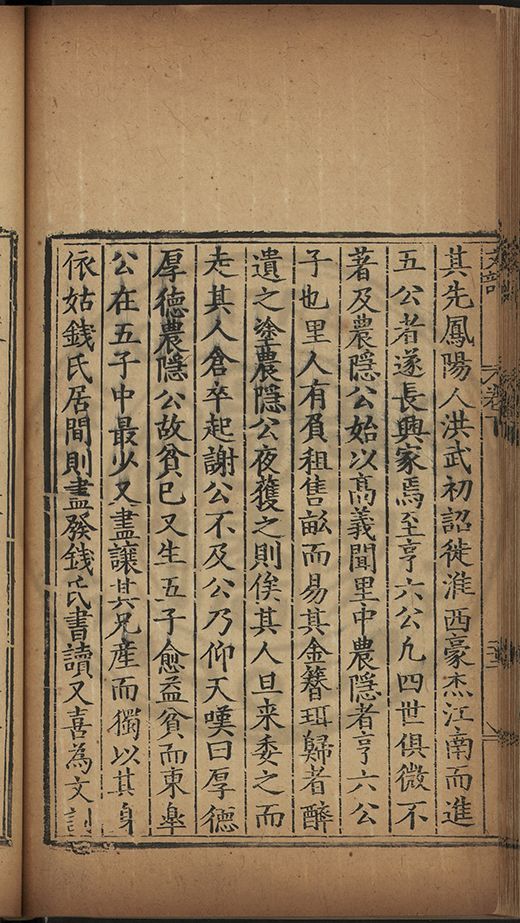 其先鳳陽人洪武初詔徙淮西豪杰江南而進
五公者遂長興家焉至亨六公凡四世俱微不
著及農隱公始以高義聞里中農隱者亨六公
子也里人有負租售畝而易其金簪珥歸者醉
遺之塗農隱公夜獲之則俟其人旦来委之而
走其人倉卒起謝公不及公乃仰天嘆曰厚德
厚德農隱公故貧已又生五子愈益貧而東臯
公在五子中最少又盡讓其兄産而獨以其身
依姑錢氏居間則盡發錢氏書讀又喜為文